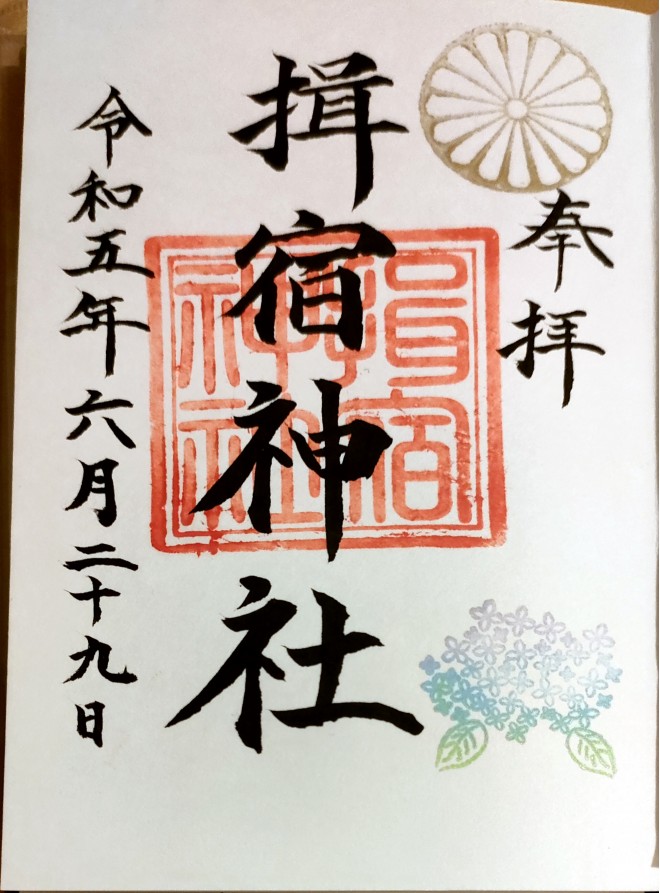 奉拝
揖宿神社
令和五年六月二十九日
指宿神社